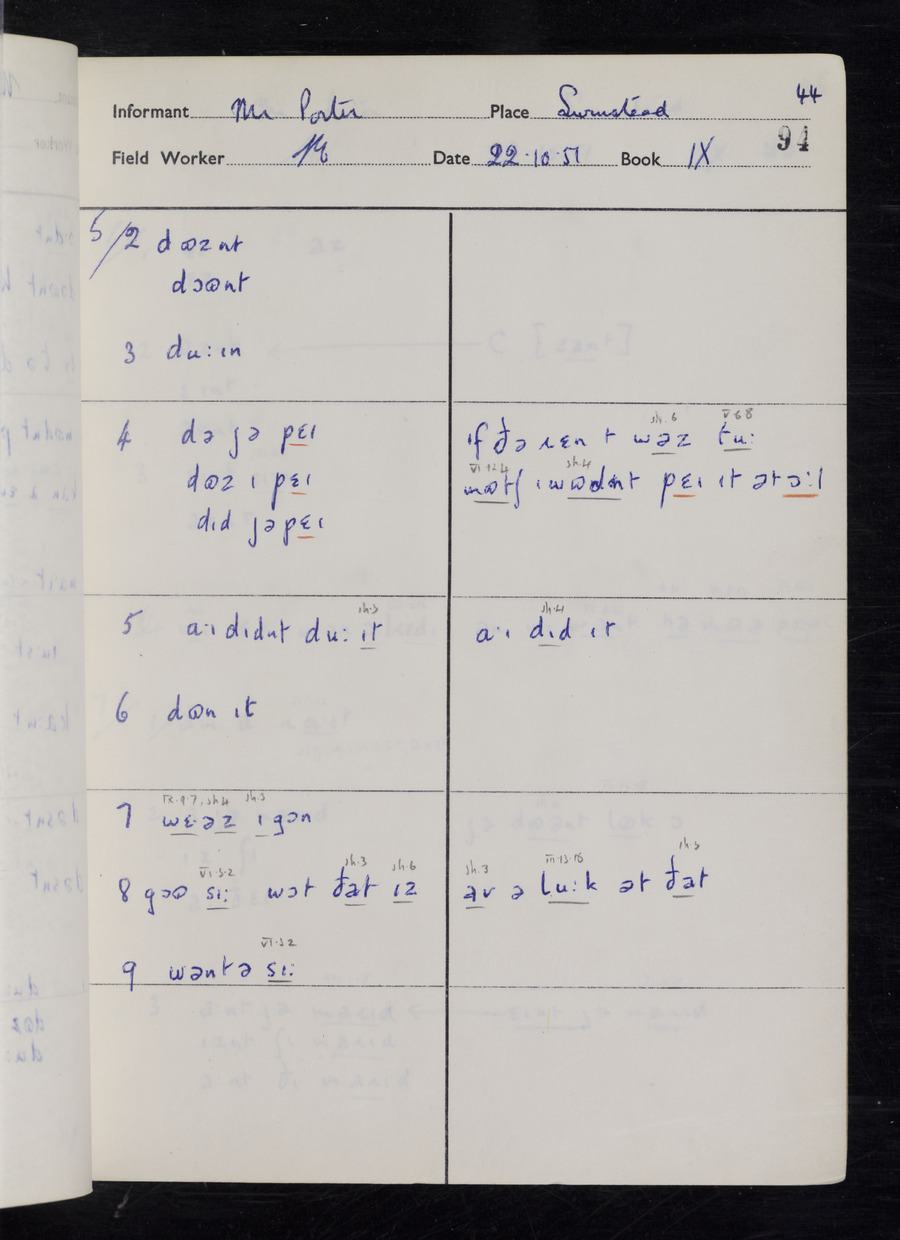 44
Informant Mr Porter Place Swinstead
94
Field Worker Date 22.10.51 Book IX
5/2 dɷznt
dɔɷnt
3 du:ɪn
4 də jə pɛɪ
dɷz ɪ pɛɪ
dɪd jə pɛɪ
sh.6 V.6.8
ɪf ðə ɹɛnt wəz tu:
VI.12.4 sh.4
mɷtʃ ɪ wɷdnt pɛɪ ɪt ət ɔ:l
sh.3
5 a·ɪ dɪdnt du: ɪt
sh.4
a·ɪ dɪd ɪt
6 dɷn ɪt
IX.9.7, sh.4 sh.3
7 wɛ·əz ɪ gɔn
VI.3.2 sh.3 sh.6
8 gɔɷ sɪ: wɔt ðat ɪz
sh.3 III.13.18 sh.3
av ə lu:k ət ðat
VI.3.2
9 wəntə sɪ: